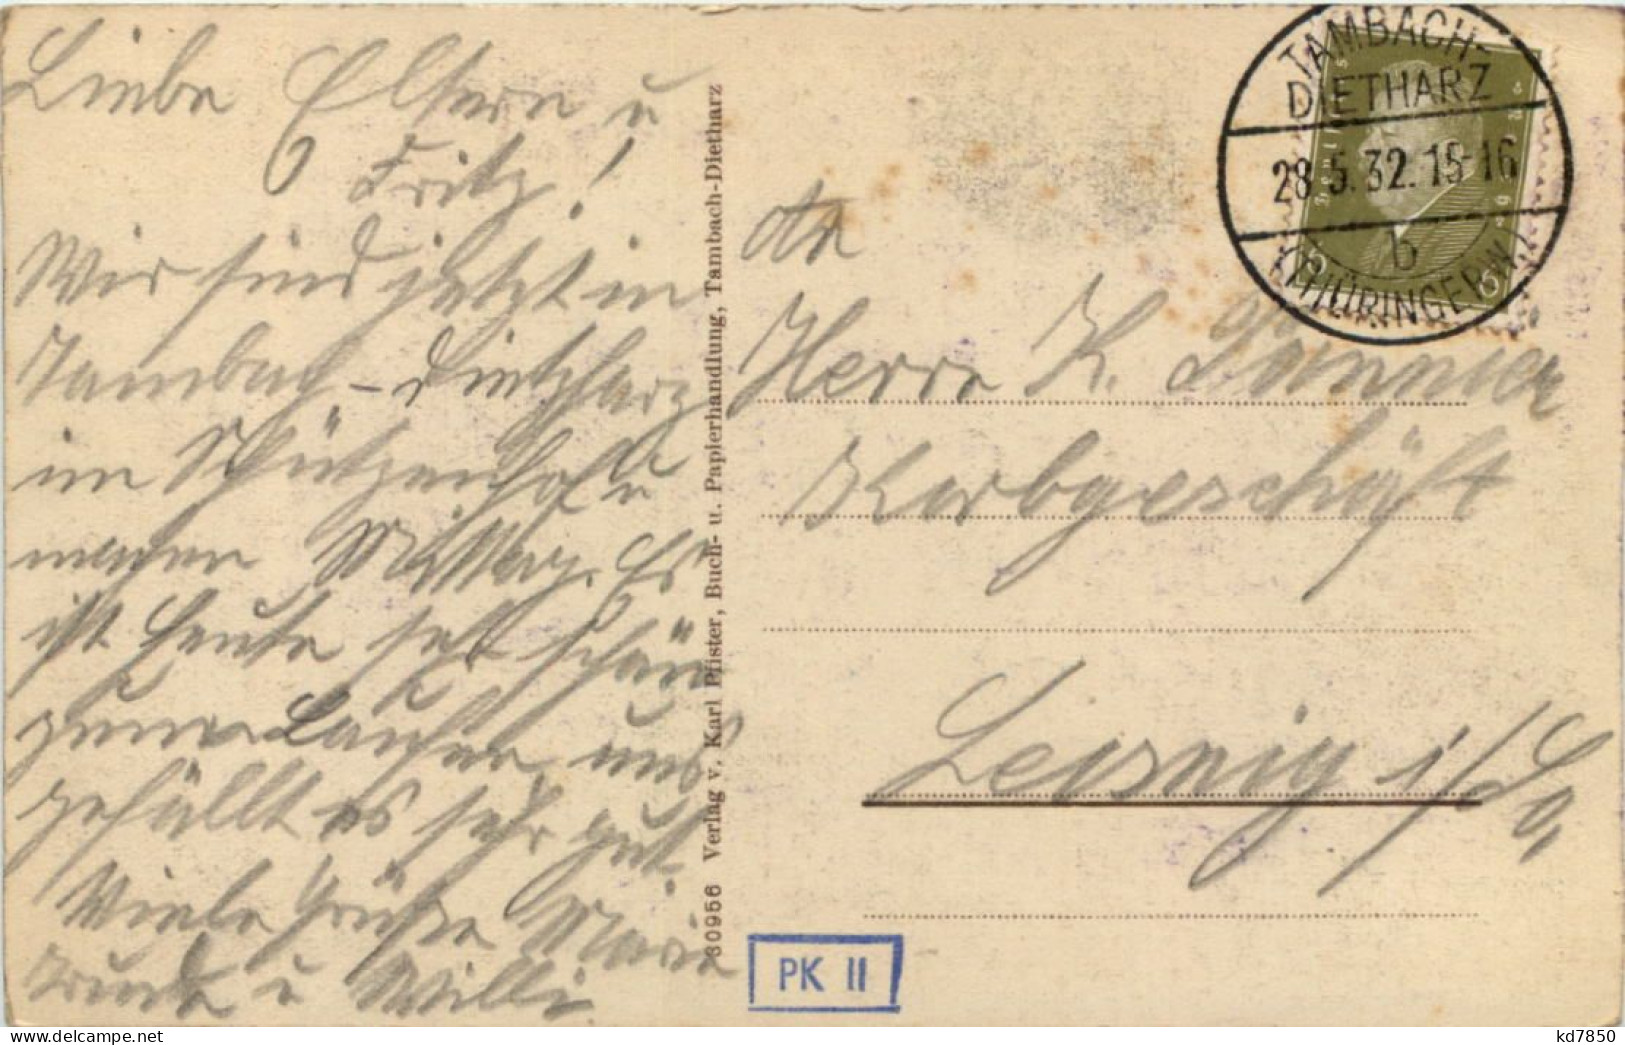 Liebe Eltern u
Fritz!
Wir sind jetzt in
Tambach-Dietharz
im Schützenhof u
machen Mittag. Es
ist heute sehr schön
zum Laufen und
gefällt es sehr gut.
Viele Grüße Marie
u Willi.
30956 Verlag v. Karl Pfister, Buch- u. Papierhandlung, Tambach-Dietharz
TAMBACH-
DIETHARZ
28.5.32.15-16
b
(THÜRINGERW.)
Deutsches
6 6
An
Herrn K.
Korbgeschäft
Leisnig i/Sa.
PK II
kd7850